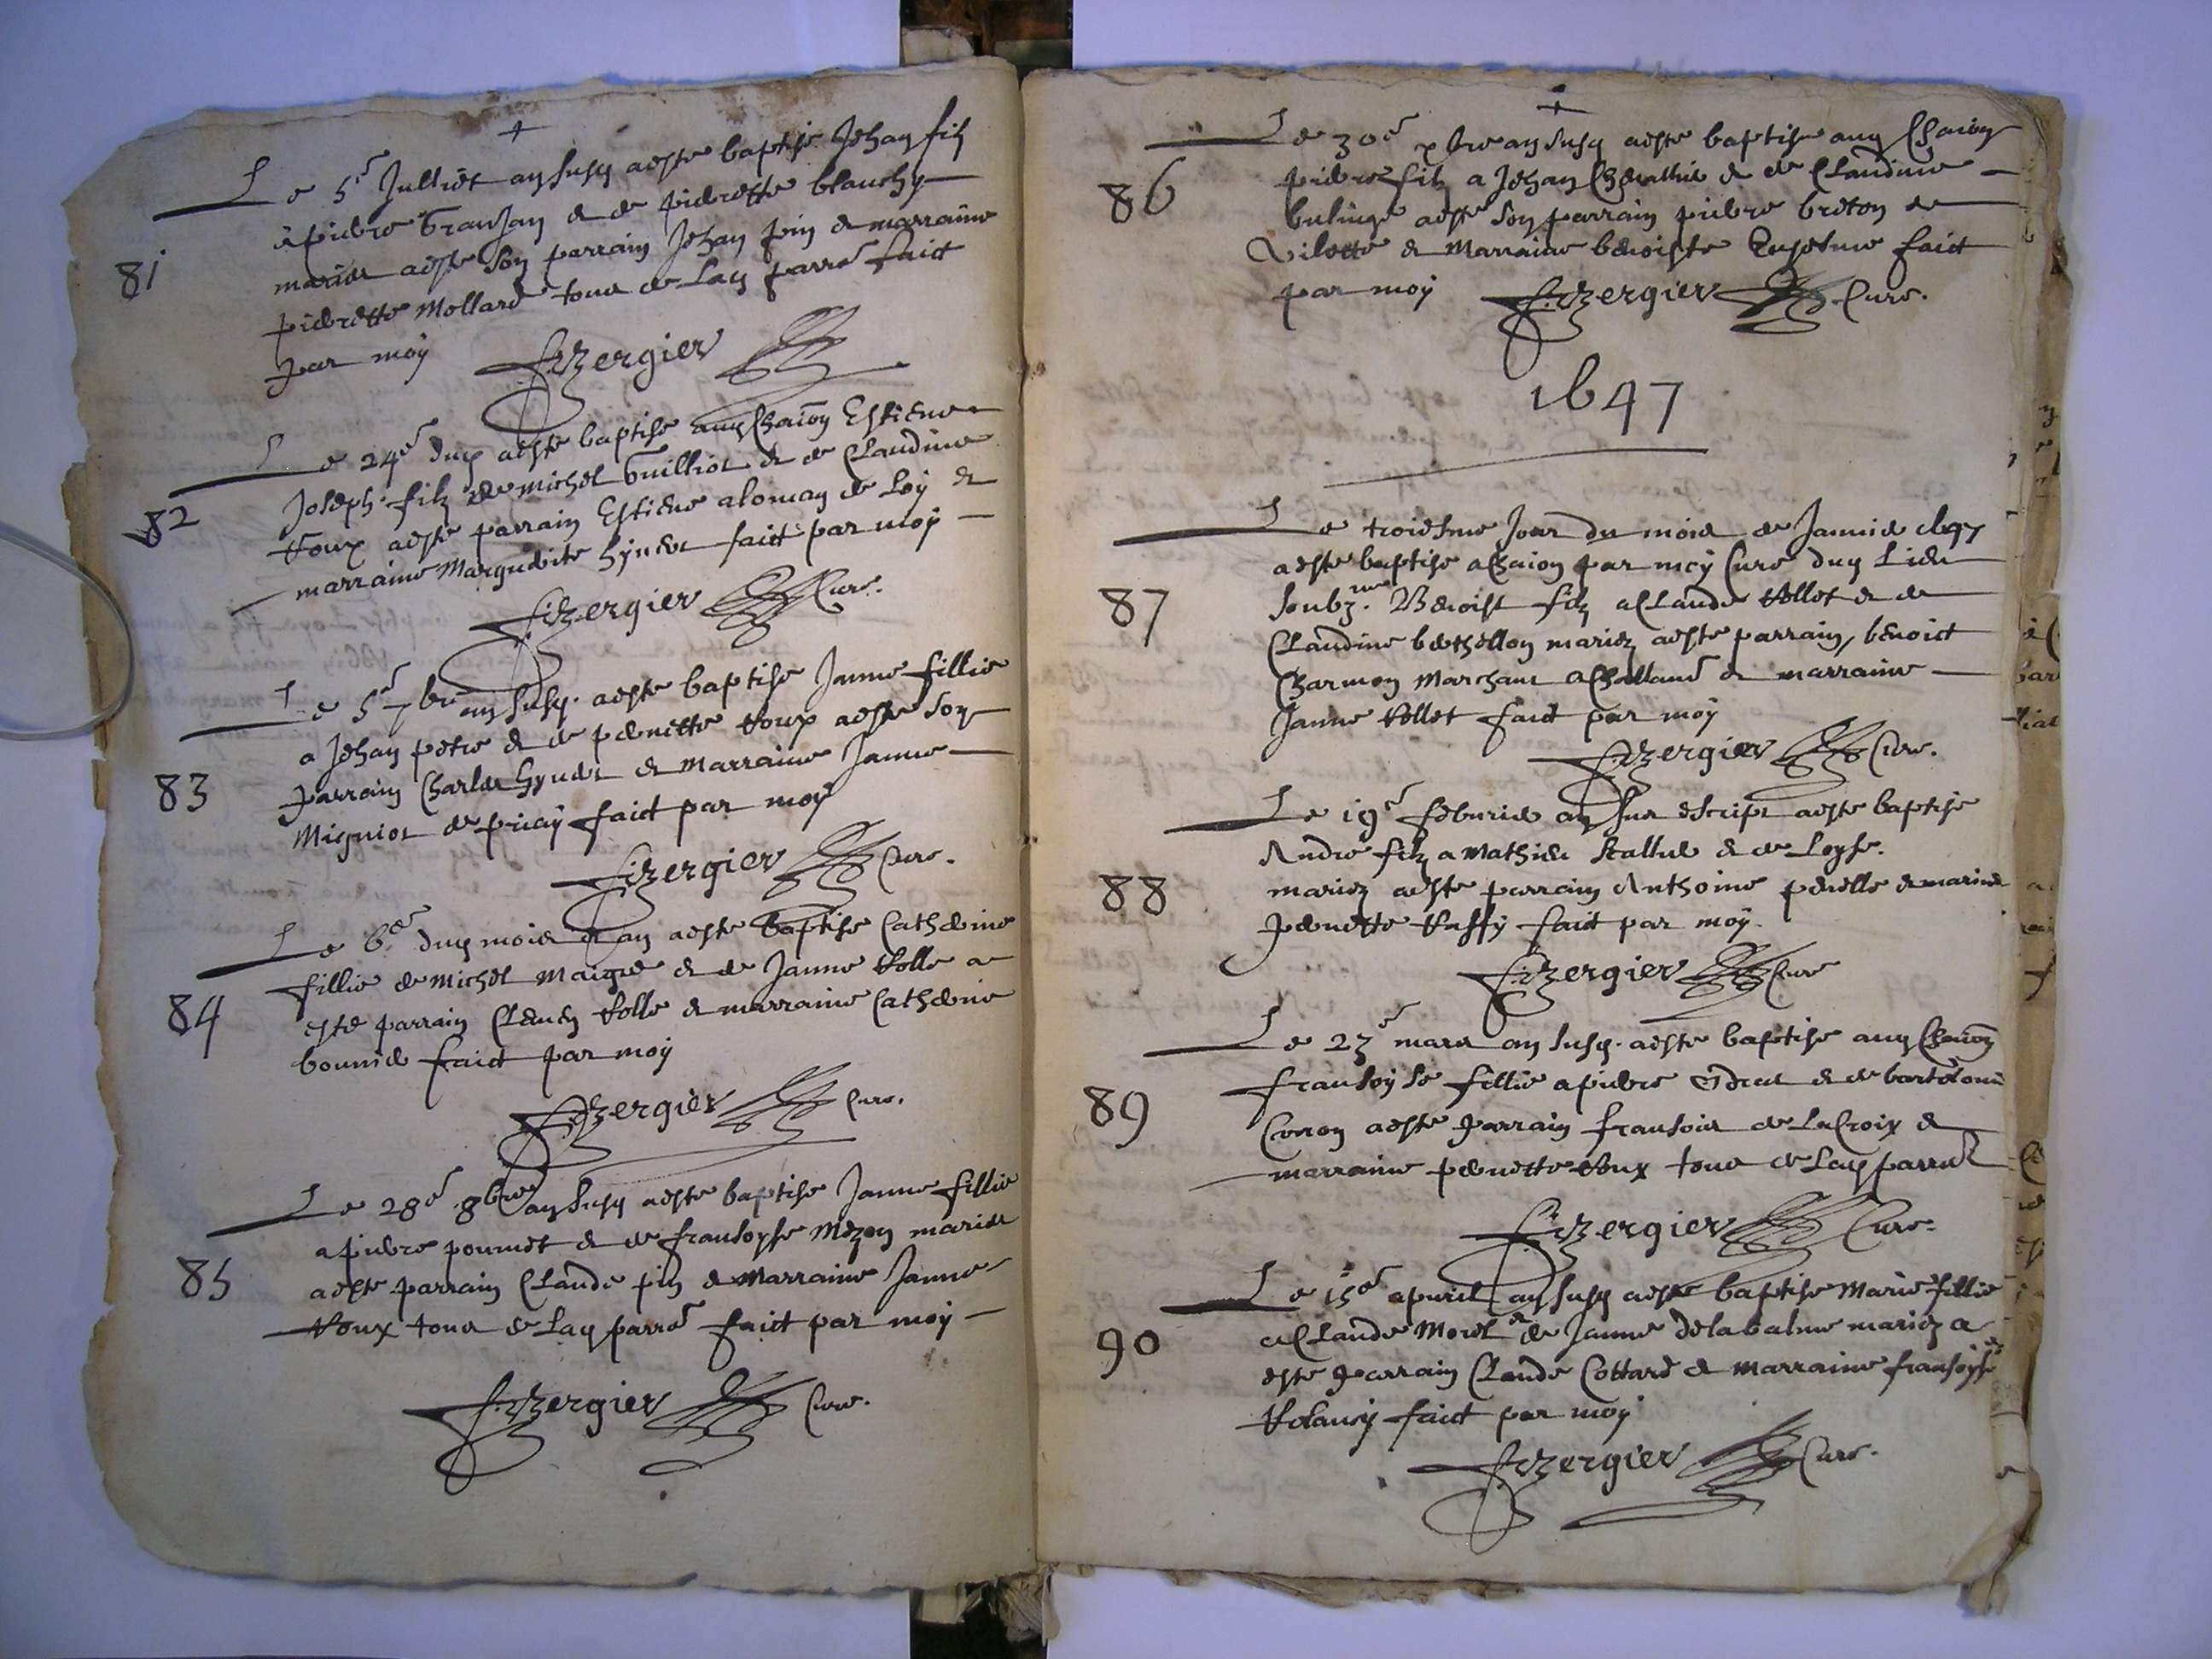 +
Le 5e Julliet an susd aeste baptise Jehan filz
a pierre Granjan & de pierrette blanchy
maries aeste son parrain Jehan pin & marraine
pierrette Mollard tous de Lad parre faict
par moy
81
F. Vergier
Le 24e dud aeste baptise aud Chaion Estiene
Joseph filz de Michel Guilliot & de Claudine
Roux aeste parrain Estiene de Loy &
marraine Marguerite faict par moy
82
F. Vergier Cure.
Le 5e 7bre an susd. aeste baptise Janne fillie
a Jehan petre & de pernette Roux aeste son
parrain Charles & Marraine Janne
Migniot de priay faict par moy
83
F. Vergier Cure.
Le 6e dud mois & an aeste baptise Catherine
fillie de Michel Maigre & de Janne Rolle a
este parrain Clement Rolle & marraine Catherine
bonnie faict par moy
84
F. Vergier Cure.
Le 28e 8bre an susd aeste baptise Janne fillie
a pierre pommet & de fransoyse Mezon maries
aeste parrain Claude pin & Marraine Janne
Roux tous de Lad parre faict par moy
85
F. Vergier Cure.
+
Le 30e xbre an susd aeste baptise aud Chaion
pierre filz a Jehan Chevallier & de Claudine
aeste son parrain pierre breton de
Vilette & Marraine benoiste faict
par moy
86
F. Vergier Cure.
1647
Le troiesme Jour du mois de Janvie 1647
aeste baptise a Chaion par moy Cure dud Lieu
soubz. ne Benoist filz a Claude Vellet & de
Claudine berthellon mariez aeste parrain, benoict
Charmon Marchant a & marraine
Janne Vellet faict par moy
87
F. Vergier Cure.
Le 19e febvrie an sus escript aeste baptise
Andre filz a Mathieu & de Loyse.
mariez aeste parrain Anthoine perelle & marine
pernette faict par moy.
88
F. Vergier Cure
Le 23e mars an susd. aeste baptise aud Chaion
fransoyse fillie a pierre & de
aeste parrain fransois de La Croix &
marraine pernette Roux tous de Lad parre
89
F. Vergier Cure.
Le 15e apvril an susd aeste baptise Marie fillie
a Claude Morel & de Janne de la balme mariez a
este parrain Claude Cottard & Marraine fransoyse
faict par moy
90
F. Vergier Cure.